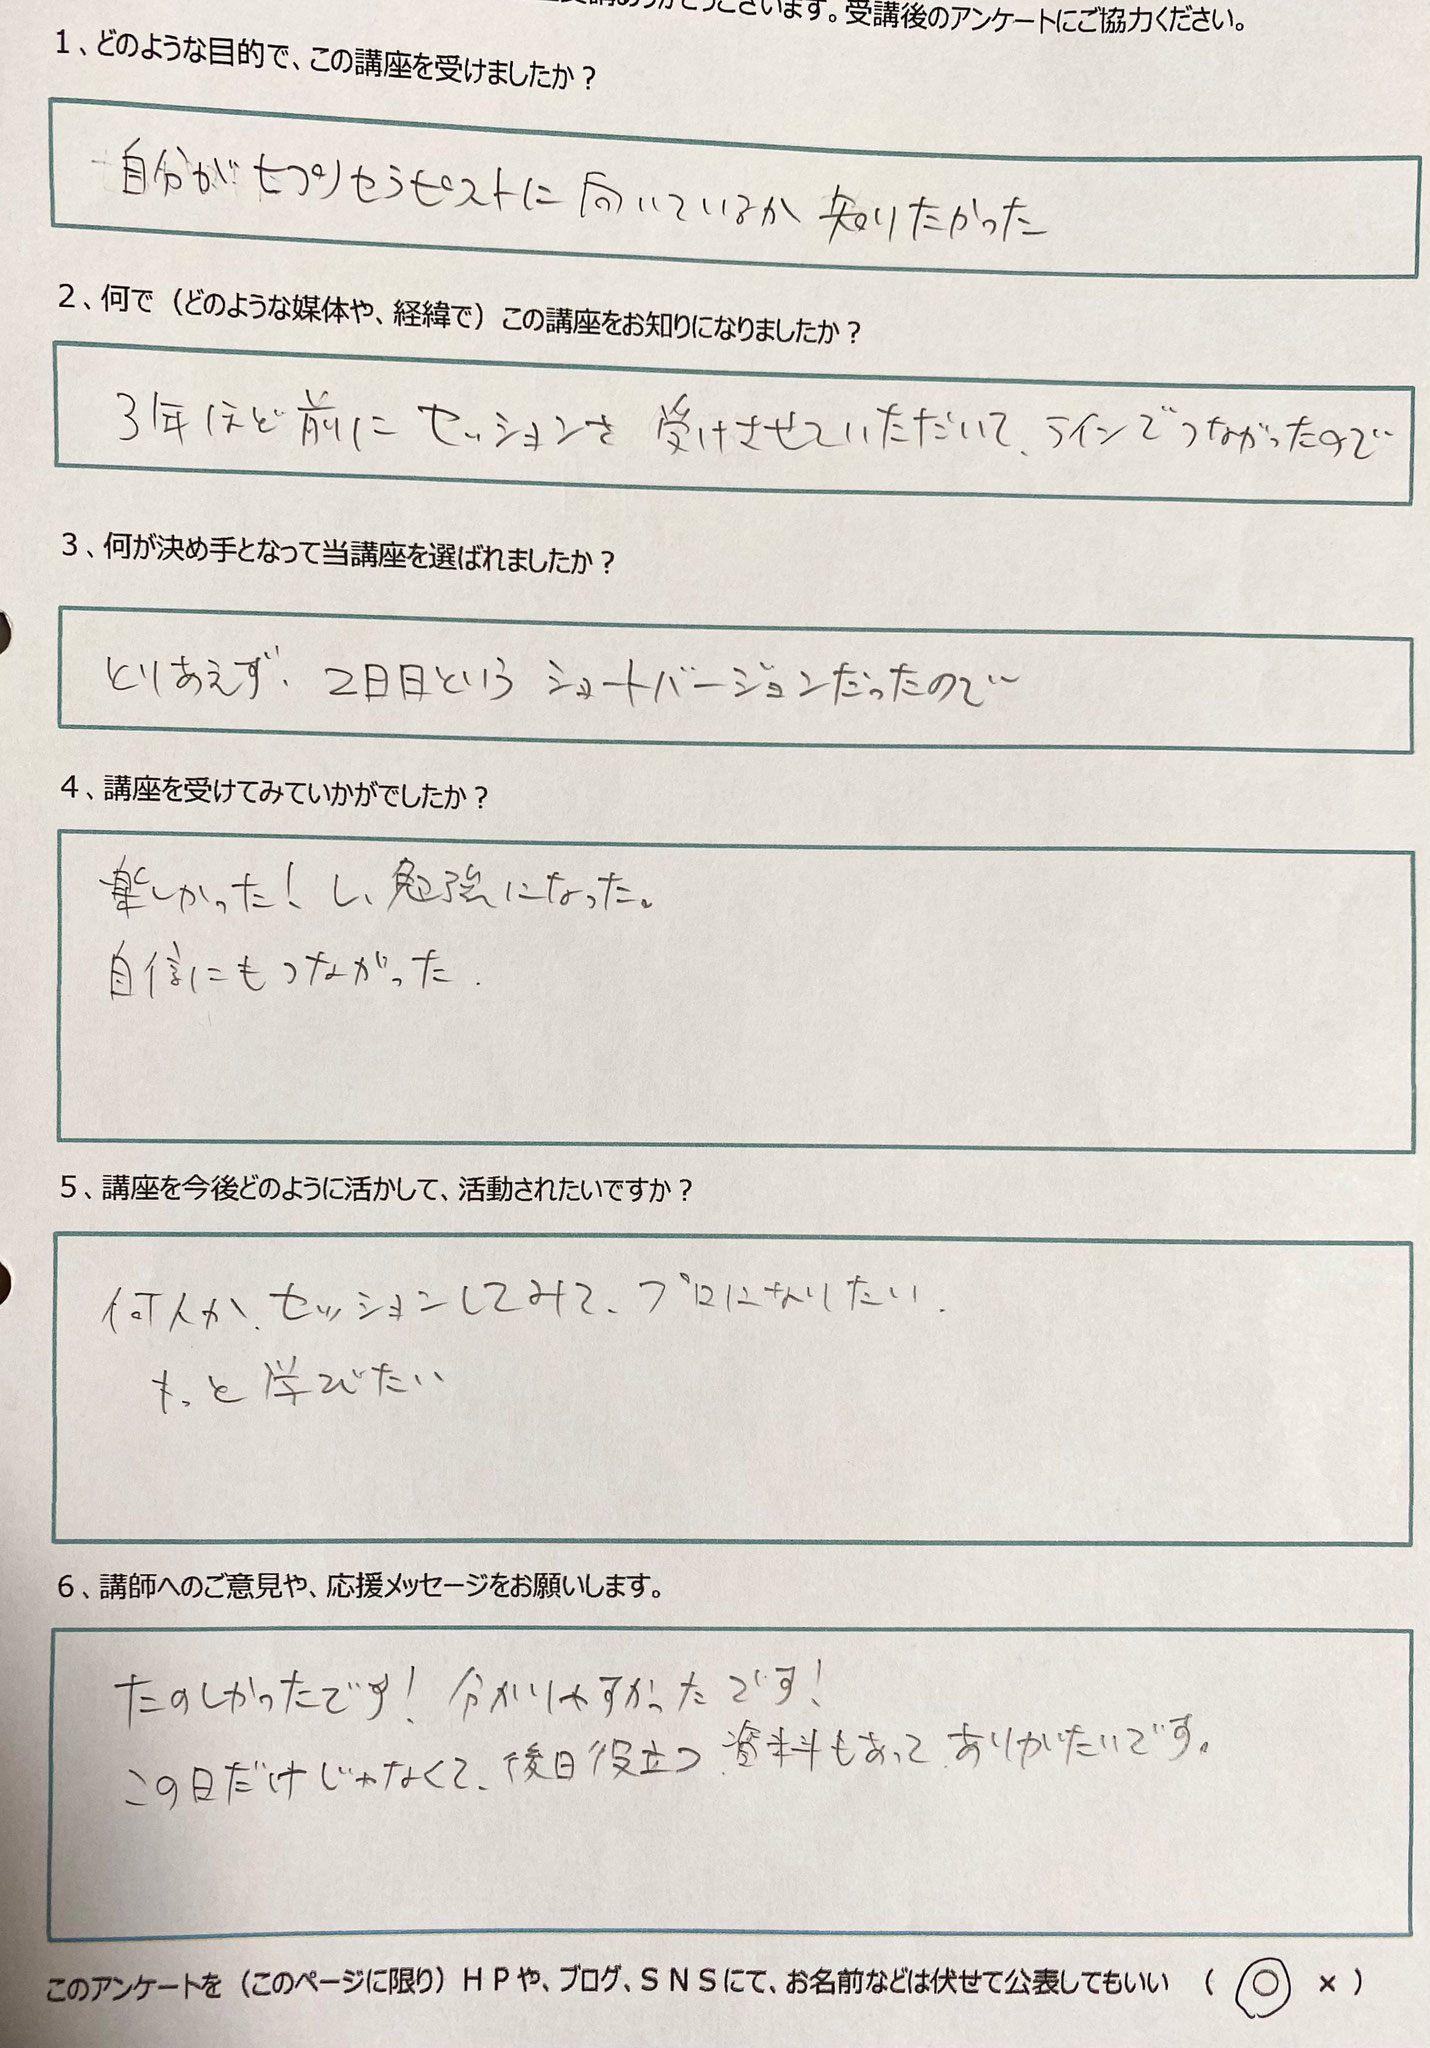 ありがとうございます。受講後のアンケートにご協力ください。
１、どのような目的で、この講座を受けましたか？
自分がヒプノセラピストに向いているか知りたかった
２、何で（どのような媒体や、経緯で）この講座をお知りになりましたか？
3年ほど前にセッションを受けさせていただいて、ラインでつながったので
３、何が決め手となって当講座を選ばれましたか？
とりあえず、2日目という ショートバージョンだったので
４、講座を受けてみていかがでしたか？
楽しかった！し、勉強になった。
自信にもつながった.
５、講座を今後どのように活かして、活動されたいですか？
何人か、セッションしてみて、プロになりたい.
もっと学びたい
６、講師へのご意見や、応援メッセージをお願いします。
たのしかったです！分かりやすかったです！
この日だけじゃなくて、後日役立つ資料もあってありがたいです。
このアンケートを（このページに限り）ＨＰや、ブログ、ＳＮＳにて、お名前などは伏せて公表してもいい （ ○ × ）